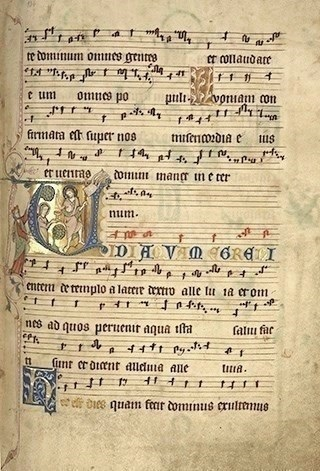 te dominum omnes gentes et collaudate
e um omnes po puli Quoniam con
firmata est super nos misericordia e ius
et ueritas domini manet in e ter
num.
VIDI AQVAM EGREDI
entem de templo a latere dextro alle lu ia et om
nes ad quos peruenit aqua ista salui fac
ti sunt et dicent alleluia alle luia.
Hec est dies quam fecit dominus exultemus